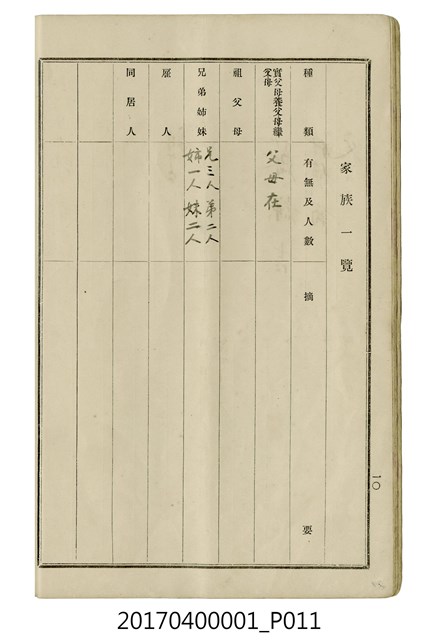 家族一覽
種類
有無及人數
摘要
實父母養父母繼父母
父母在
祖父母
兄弟姉妹
兄三人 第二人
姉一人 妹二人
雇人
同居人
一〇
20170400001_P011